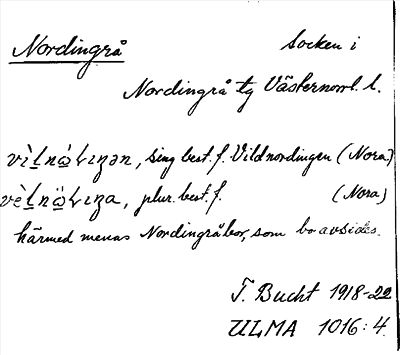 Nordingrå Socken i
Nordingrå tg Västernorrl. l.
sing best. f. Vildnordingen (Nora.)
plur. best. f. (Nora)
härmed menas Nordingråbor, som bo avsides.
T. Bucht 1918-22
ULMA 1016:4.